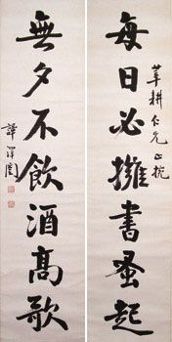 每日必擁書蚤起
莘耕仁兄正捥
無夕不飲酒高歌
譚澤闓